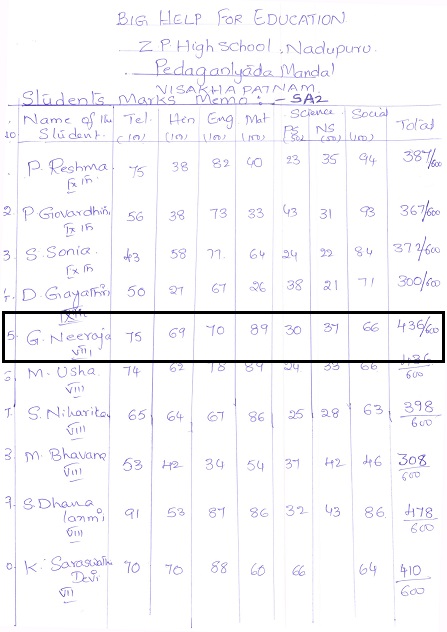 BIG HELP FOR EDUCATION
Z P High School, Nadupuru.
Pedagantyada Mandal
VISAKHAPATNAM.
Students Marks Memo :- SA2
Name of the Student. Tel. (100) Hen (100) Eng (100) Mat (100) Science PS (50) NS (50) Social (100) Total
P. Reshma IX th 75 38 82 40 23 35 94 387/600
2. P Govardhini IX th 56 38 73 33 43 31 93 367/600
3. S. Sonia. IX th 43 58 77 64 24 22 84 372/600
D. Gayathri 50 27 67 26 38 21 71 300/600
5. G. Neeraja VIII 75 69 70 89 30 37 66 436/600
M. Usha VIII 74 62 78 89 24 33 66 /600
S. Niharika VIII 65 64 67 86 25 28 63 398/600
M. Bhavana VIII 53 42 34 54 37 42 46 308/600
9. S. Dhana laxmi VIII 91 53 87 86 32 43 86 478/600
K. Saraswathi Devi VII 70 70 88 60 66 64 410/600